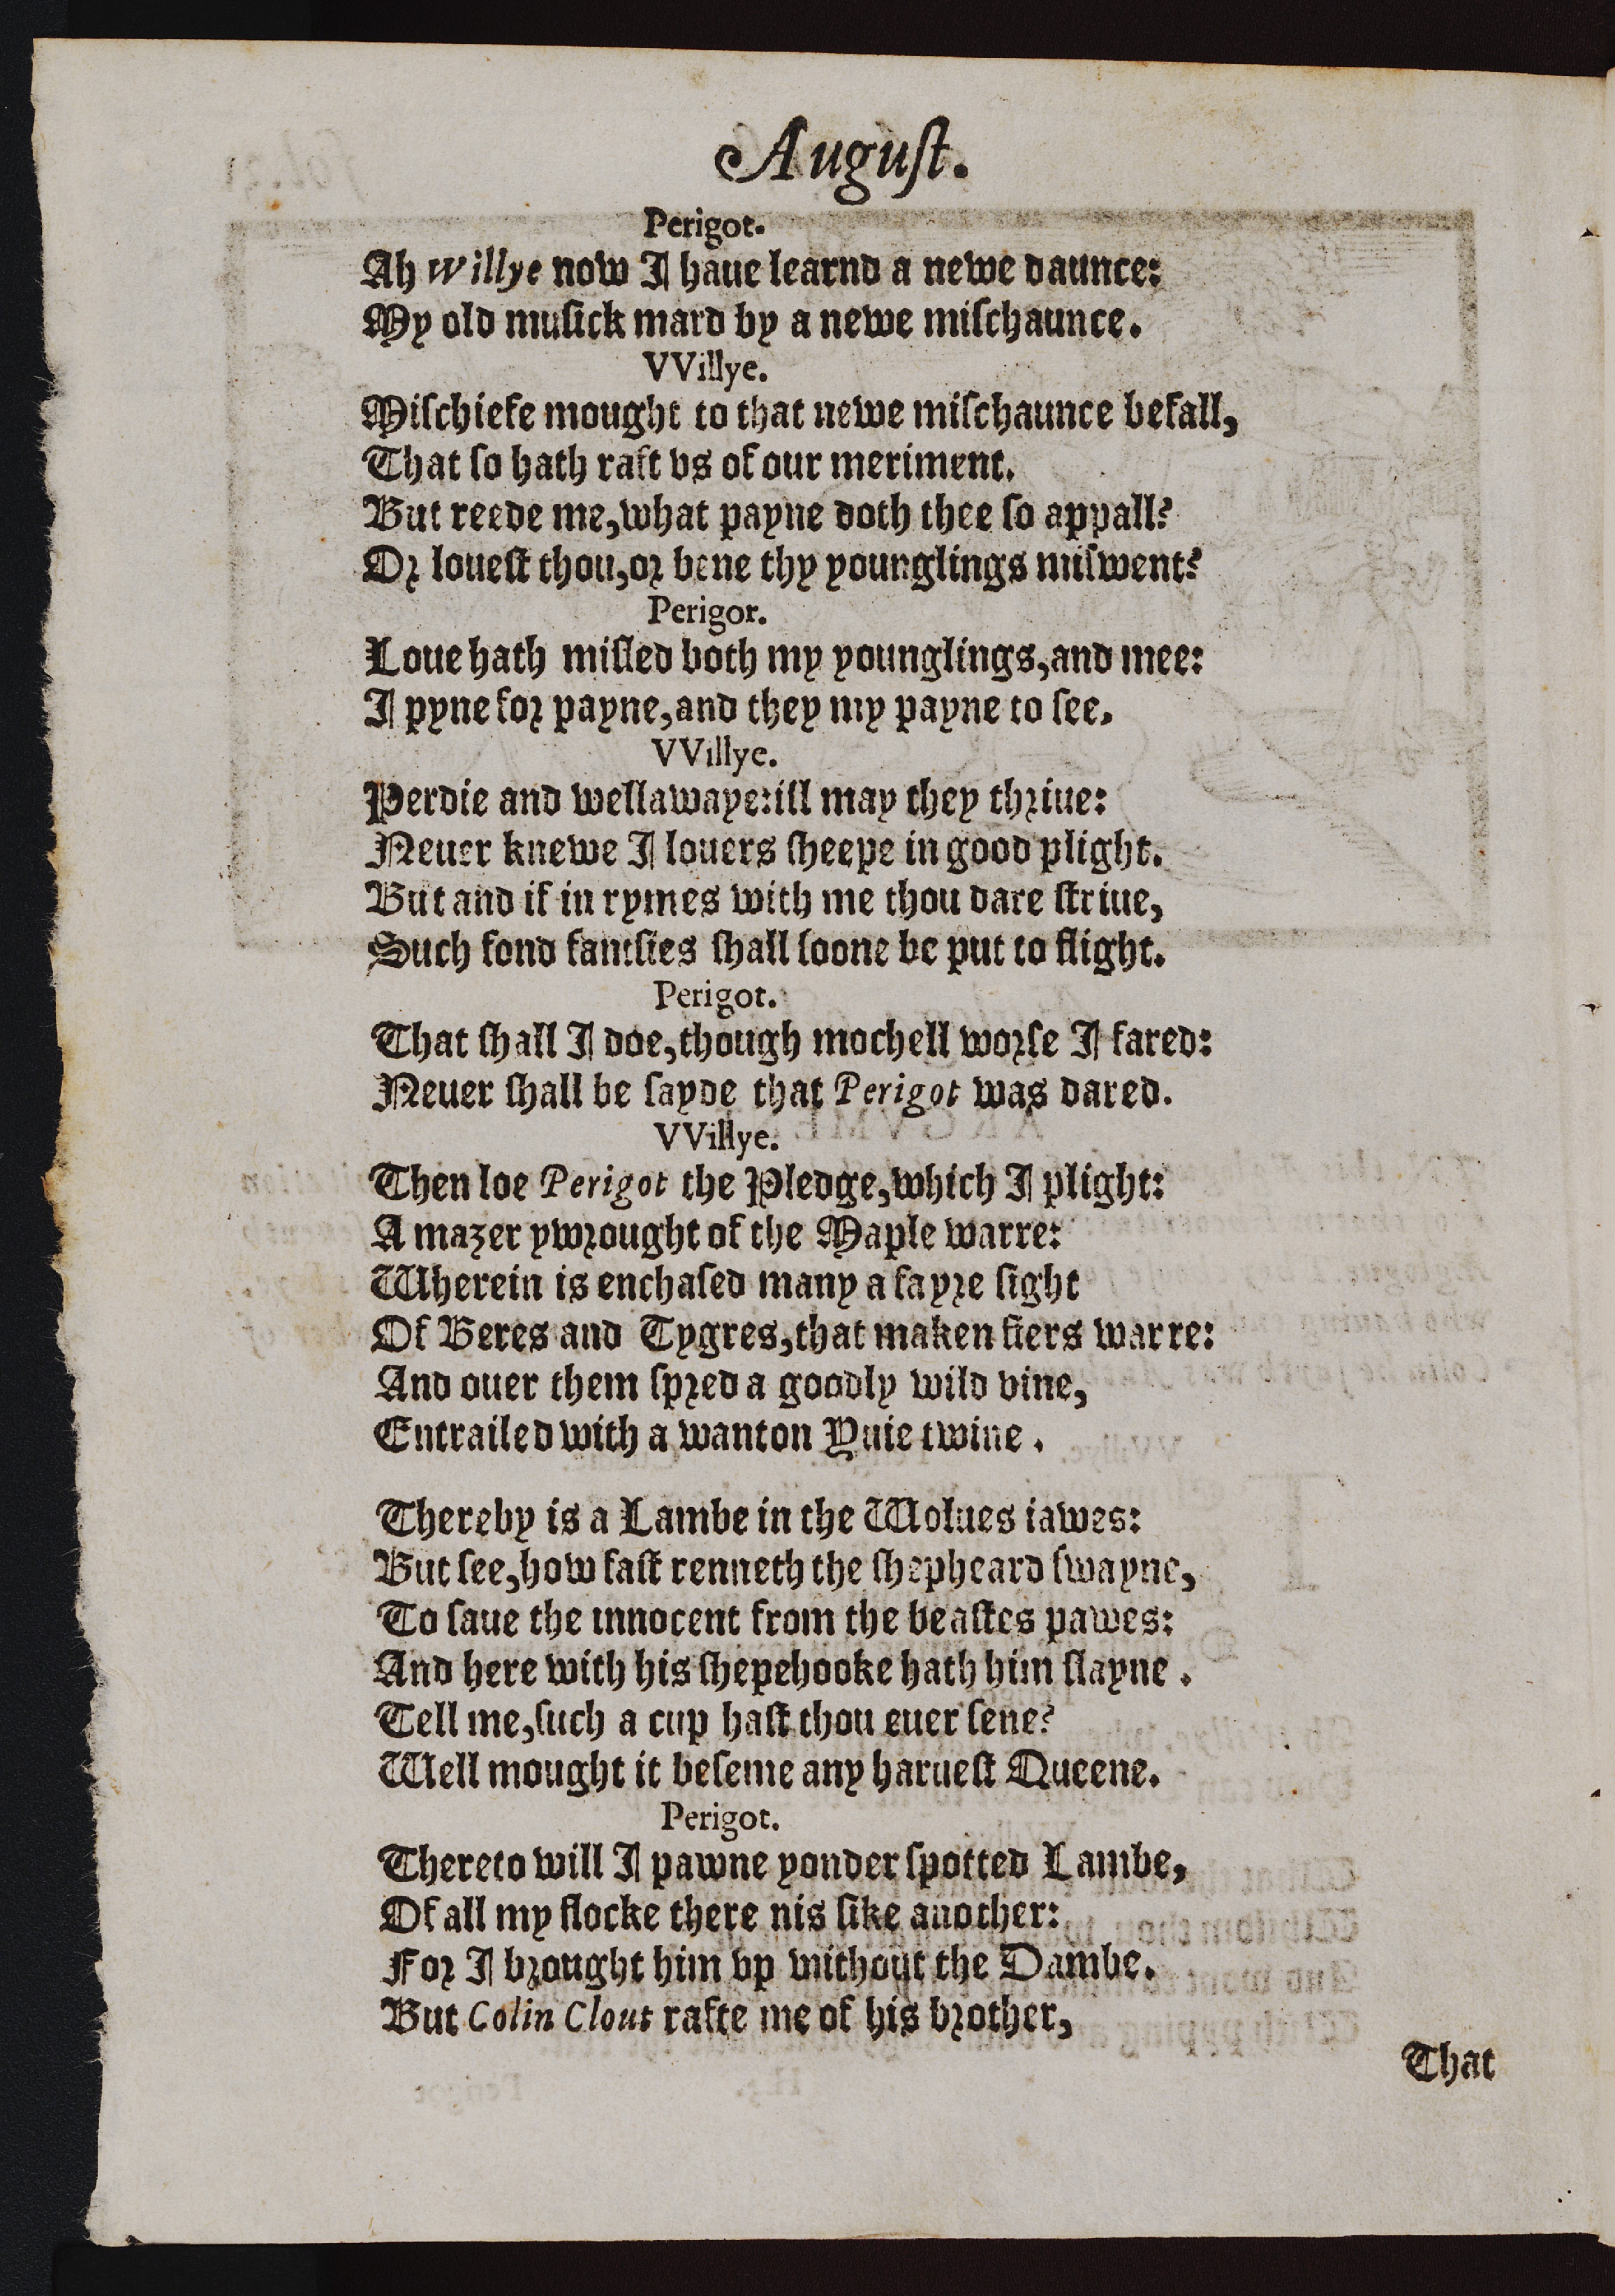 Auguſt.
Perigot.
Ah Willye now I haue learnd a newe daunce:
My old muſick mard by a newe miſchaunce.
VVillye.
Miſchiefe mought to that newe miſchaunce befall,
That ſo hath raft vs of our meriment.
But reede me, what payne doth thee ſo appall?
Or loueſt thou, or bene thy younglings miſwent?
Perigor.
Loue hath miſled both my younglings, and mee:
I pyne for payne, and they my payne to ſee.
VVillye.
Perdie and wellawaye: ill may they thriue:
Neuer knewe I louers ſheepe in good plight.
But and if in rymes with me thou dare ſtriue,
Such fond fantſies ſhall ſoone be put to flight.
Perigot.
That ſhall I doe, though mochell worſe I fared:
Neuer ſhall be ſayde that Perigot was dared.
VVillye.
Then loe Perigot the Pledge, which I plight:
A mazer ywrought of the Maple warre:
Wherein is enchaſed many a fayre ſight
Of Beres and Tygres, that maken fiers warre:
And ouer them ſpred a goodly wild vine,
Entrailed with a wanton Yuie twine.
Thereby is a Lambe in the Wolues iawes:
But ſee, how faſt renneth the ſhepheard ſwayne,
To ſaue the innocent from the beaſtes pawes:
And here with his ſhepehooke hath him ſlayne.
Tell me, ſuch a cup haſt thou euer ſene?
Well mought it beſeme any harueſt Queene.
Perigot.
Thereto will I pawne yonder ſpotted Lambe,
Of all my flocke there nis ſike another:
For I brought him vp without the Dambe.
But Colin Clout rafte me of his brother,
That